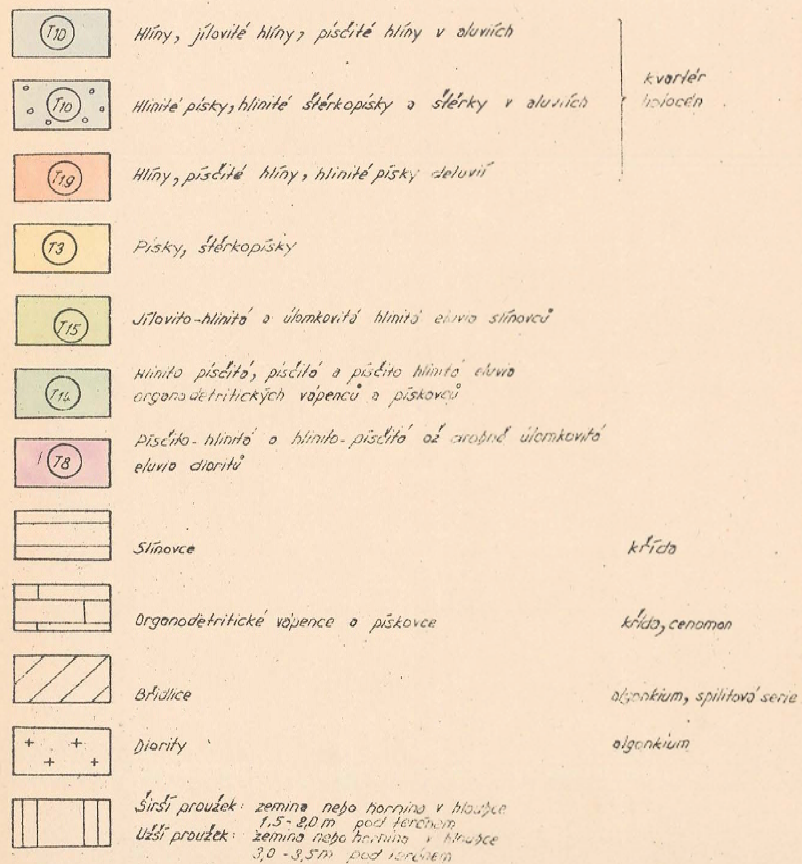 T10 Hlíny, jílovité hlíny, písčité hlíny v aluviích
kvartér
holocén
T10 Hlinité písky, hlinité štěrkopísky a štěrky v aluviích
T19 Hlíny, písčité hlíny, hlinité písky deluvií
T3 Písky, štěrkopísky
T15 Jílovito-hlinitá a úlomkovitá hlinitá eluvia slínovců
T14 Hlinito písčitá, písčitá a písčito hlinitá eluvia
organodetritických vápenců a pískovců
T8 Písčito-hlinitá a hlinito-písčitá až drobně úlomkovitá
eluvia dioritů
Slínovce křída
Organodetritické vápence a pískovce křída, cenoman
Břidlice algonkium, spilitová serie
Diority algonkium
Širší proužek: zemina nebo hornina v hloubce
1,5-2,0 m pod terénem
Užší proužek: zemina nebo hornina v hloubce
3,0-3,5m pod terénem